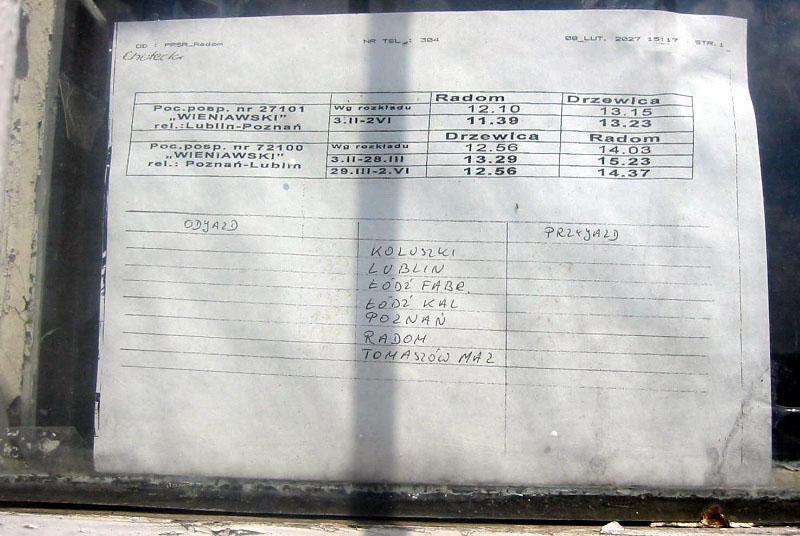 OD : PPSR_Radom NR TEL. : 304 08_LUT. 2027 15:17 STR.1
Radom Drzewica
Poc.posp. nr 27101 Wg rozkładu 12.10 13.15
„WIENIAWSKI” 3.II-2VI 11.39 13.23
rel.:Lublin-Poznań
Drzewica Radom
Poc.posp. nr 72100 Wg rozkładu 12.56 14.03
„WIENIAWSKI” 3.II-28.III 13.29 15.23
rel.: Poznań-Lublin 29.III-2.VI 12.56 14.37
ODJAZD PRZYJAZD
KOLUSZKI
LUBLIN
ŁÓDŹ FABR.
ŁÓDŹ KAL
POZNAŃ
RADOM
TOMASZÓW MAZ